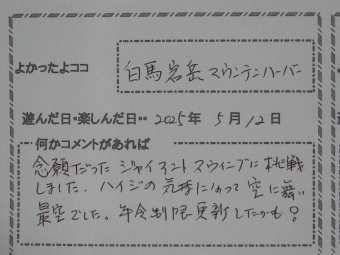 よかったよココ
白馬岩岳マウンテンハーバー
遊んだ日・楽しんだ日・・2025年 5月12日
何かコメントがあれば
念願だった ジャイアントスウィングに挑戦
しました. ハイジの気持になって 空に舞い
最空でした. 年令制限更新したかも?